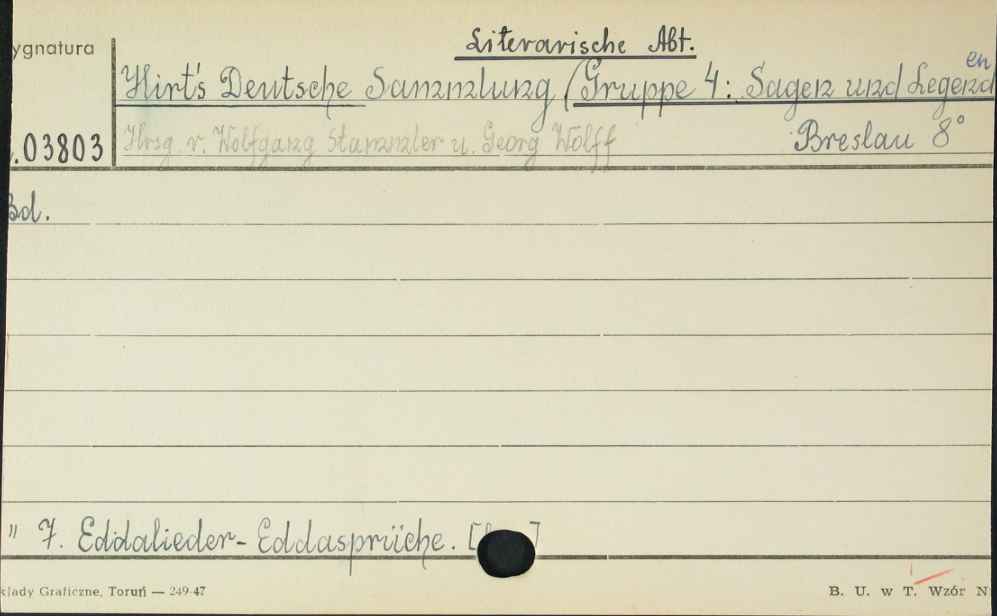 Literarische Abt.
ygnatura
Hirt's Deutsche Sammlung (Gruppe 4: Sagen und Legenden
.03803
Hrsg. v. Wolfgang Stammler u. Georg Wolff
Breslau 8°
Bd.
" 7. Eddalieder- Eddasprüche. [
kłady Graficzne, Toruń — 249-47
B. U. w T. Wzór N